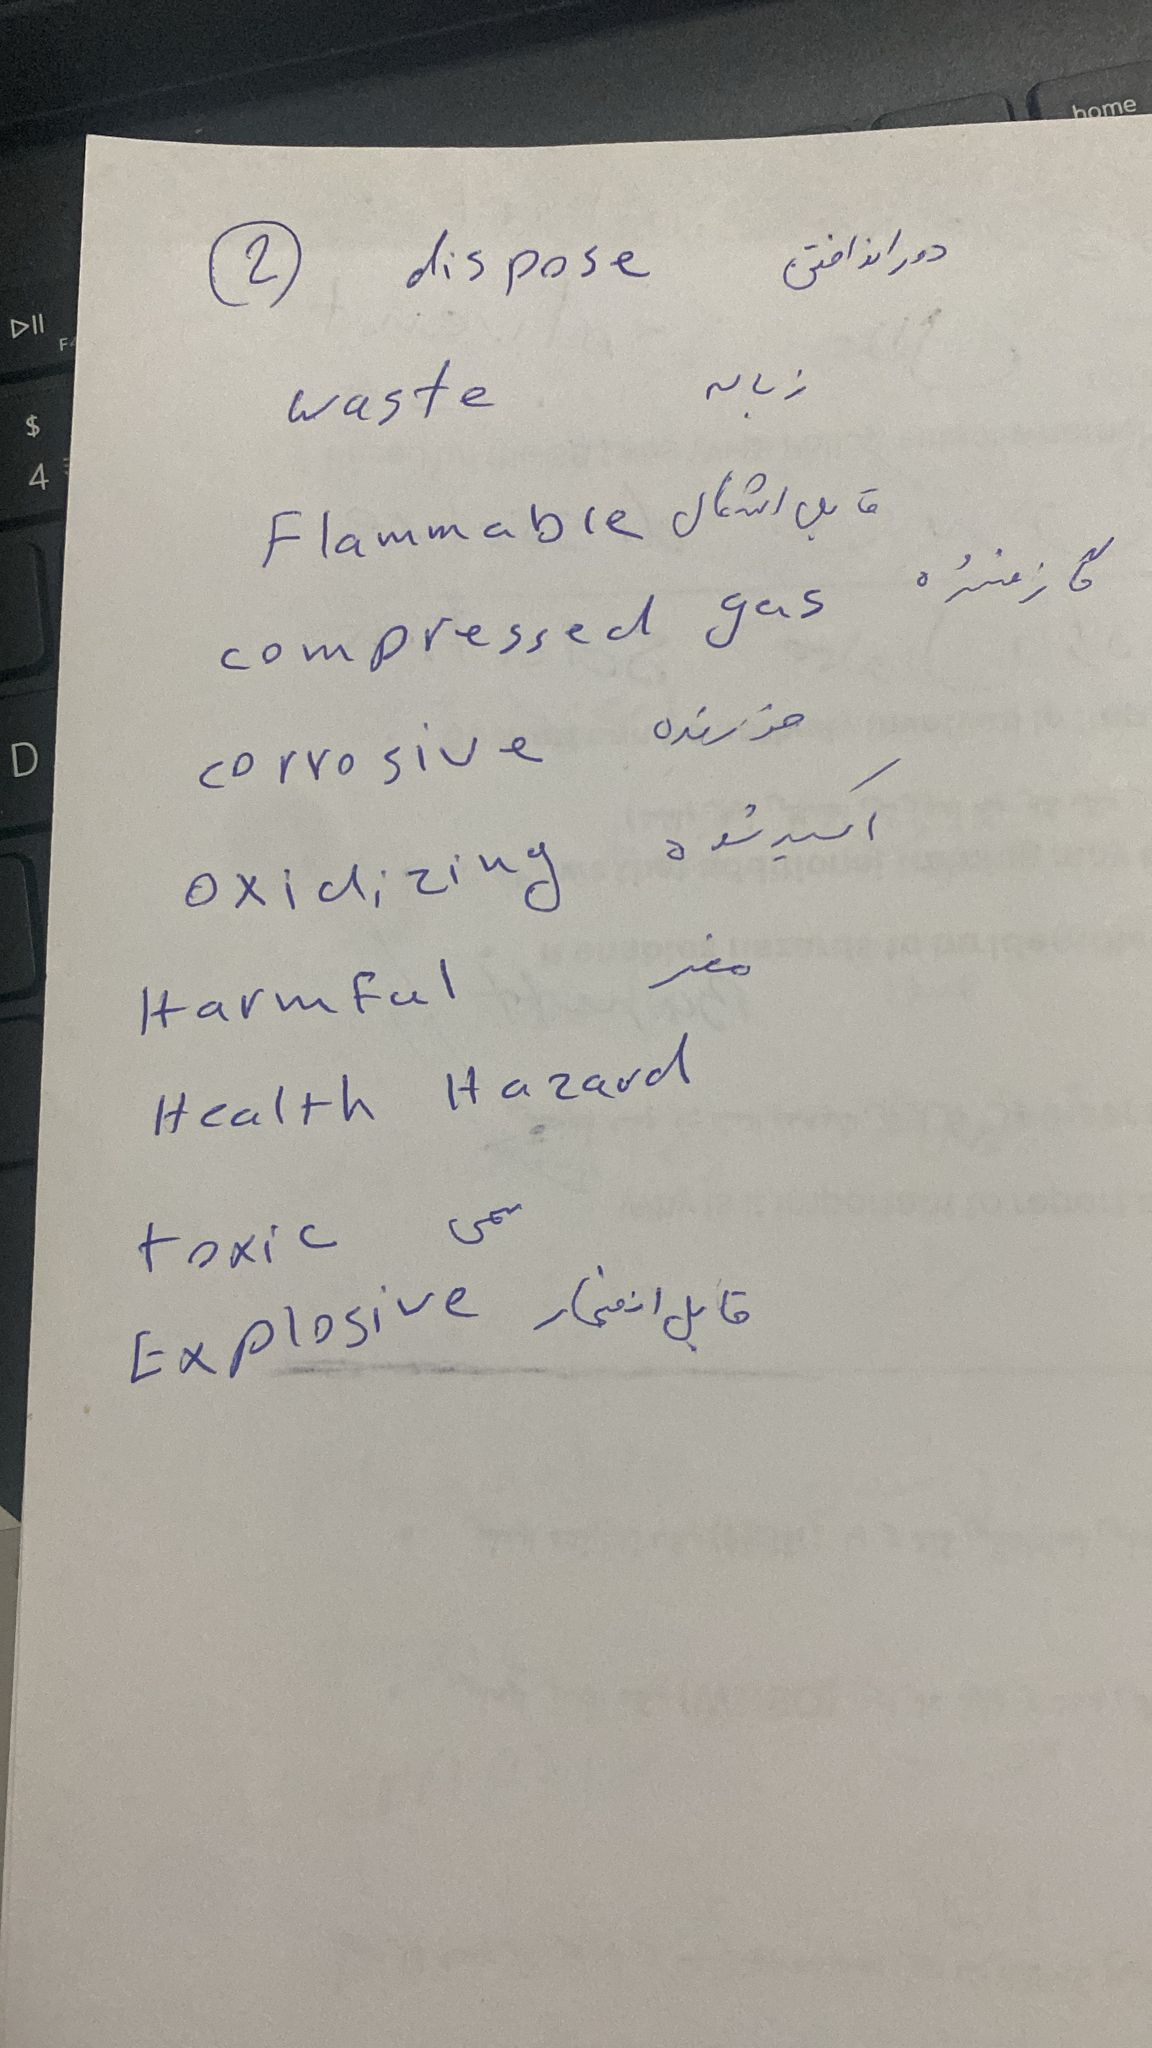 home
② dispose دور انداختن
▷II
F4
waste زباله
$
4
Flammable قابل اشتعال
compressed gas گاز فشرده
corrosive خورنده
D
oxidizing اکسید شونده
Harmful مضر
Health Hazard
toxic سمی
Explosive قابل انفجار